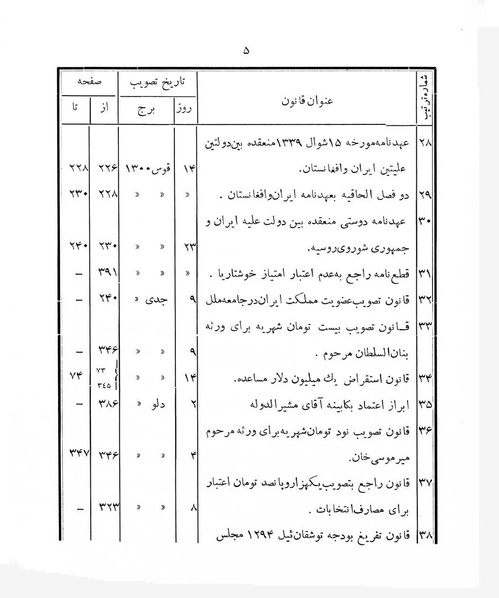 ۵
شماره‌ترتیب عنوان قانون تاریخ تصویب صفحه
روز برج از تا
۲۸ عهدنامه‌مورخه ۱۵شوال ۱۳۳۹منعقده بین‌دولتین
علیتین ایران وافغانستان. ۱۴ قوس ۱۳۰۰ ۲۲۶ ۲۲۸
۲۹ دو فصل الحاقیه بعهدنامه ایران‌وافغانستان . » » » ۲۲۸ ۲۳۰
۳۰ عهدنامه دوستی منعقده بین دولت علیه ایران و
جمهوری شوروی‌روسیه. ۲۳ » » ۲۳۰ ۲۴۰
۳۱ قطع‌نامه راجع به‌عدم اعتبار امتیاز خوشتاریا . » » » ۳۹۱ –
۳۲ قانون تصویب‌عضویت مملکت ایران‌درجامعه‌ملل ۹ جدی » ۲۴۰ –
۳۳ قانون تصویب بیست تومان شهریه برای ورثه
بنان‌السلطان مرحوم . ۹ » » ۳۴۶ –
۳۴ قانون استقراض یك میلیون دلار مساعده. ۱۴ » » ۷۳ ۷۴
۳۴۵
۳۵ ابراز اعتماد بکابینه آقای مشیرالدوله ۲ دلو » ۳۸۶ –
۳۶ قانون تصویب نود تومان‌شهریه‌برای ورثه مرحوم
میرموسی‌خان. ۴ » » ۳۴۶ ۳۴۷
۳۷ قانون راجع بتصویب‌یکهزاروپانصد تومان اعتبار
برای مصارف‌انتخابات . ۸ » » ۳۲۳ –
۳۸ قانون تفریغ بودجه توشقان‌ئیل ۱۲۹۴ مجلس